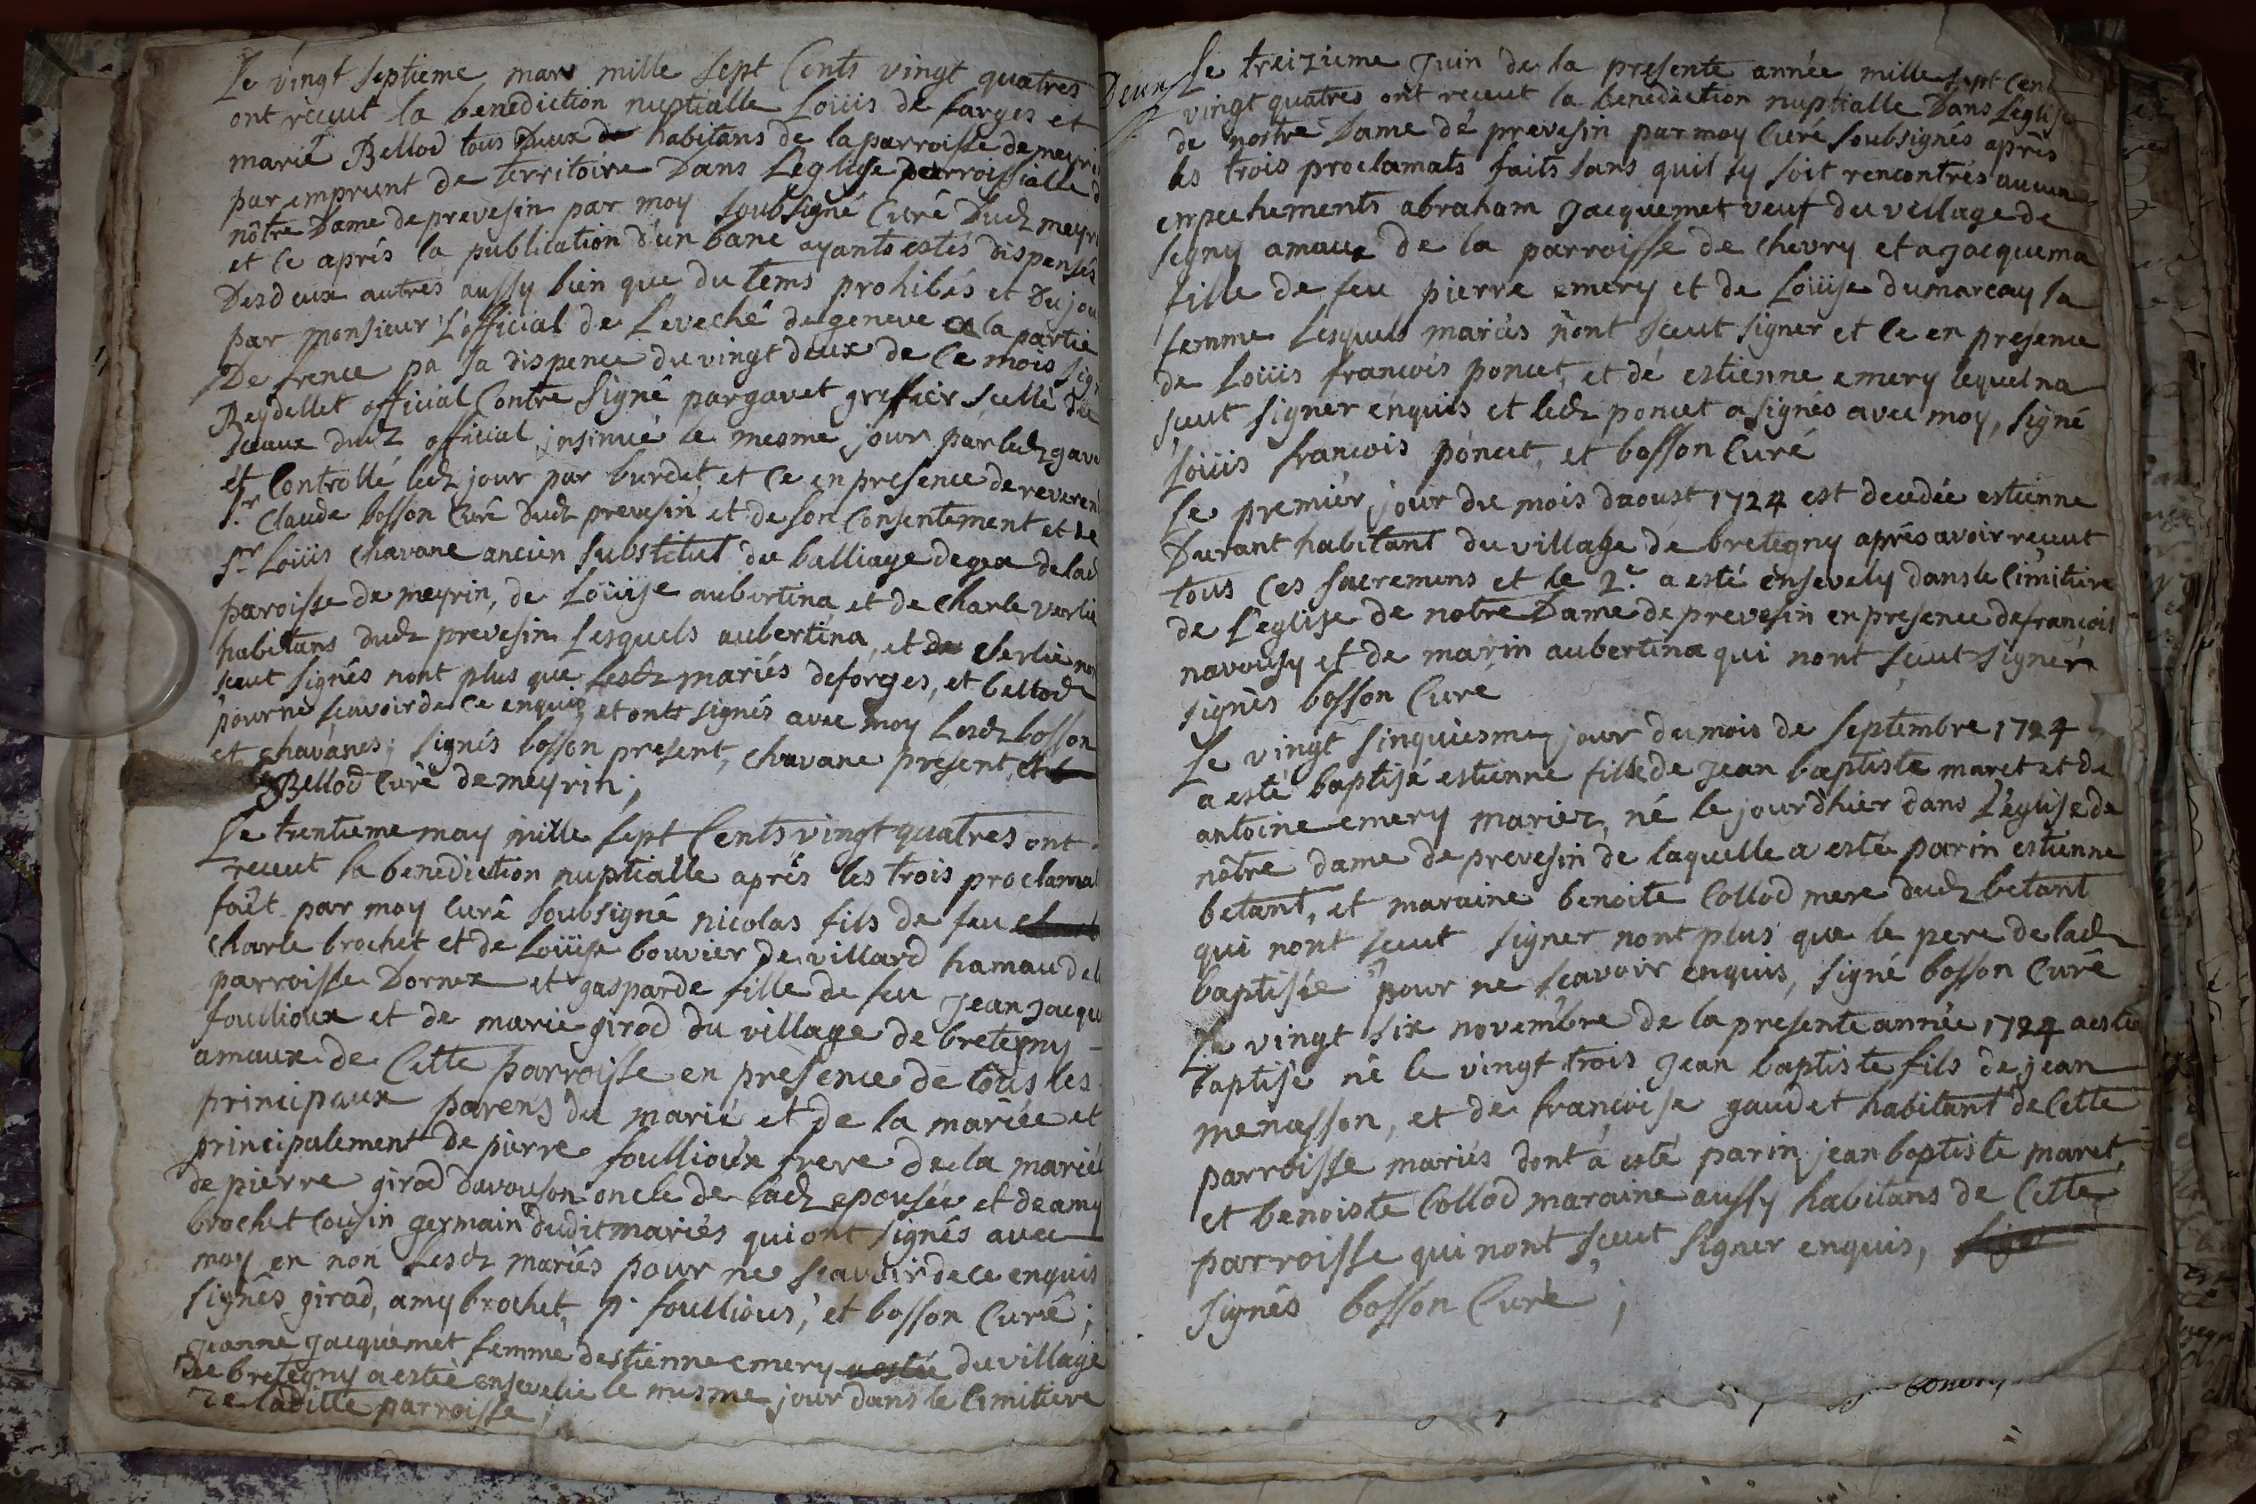 Le vingt septieme mars mille sept Cents vingt quatres
ont receut la benediction nuptialle Loüis de farges et
marie Bellod tous Deux habitans de la parroisse de meyri
par emprunt de territoire Dans Leglise parroissialle d
nôtre Dame de prevesin par moy soubsigné Curé Dudz meyri
et ce aprés la publication d'un banc ayants estés dispensés
Des deux autres aussy bien que du tems prohibés et Du jou
par monsieur L'official de Leveché de geneve a la partie
De frence pa sa dispence du vingt deux de ce mois sig
Reydellet official Contre signé par gavet greffier scellé du
sceaux dudz official insinué le mesme jour par ledz gave
et Controllé ledz jour par burdet, et ce en presence de reveren
Sr Claude bosson Curé dudz prevesin et de son Consentement et de
Sr Loüis chavane ancien substitut du balliage de gex de lad
paroisse de meyrin, de Loüise aubertina et de charle verlie
habitans dudz prevesin Lesquels aubertina, et verlie non
sceut signés nont plus que Lesdz mariés deforges, et bellod
pour ne scavoir de ce enquis et ont signés avec moy Lesdz bosson
et chavanes; signés bosson present, chavane present,
Bellod Curé de meyrin;
Le trentieme may mille sept Cents vingt quatres ont
receut la benediction nuptialle aprés les trois proclama
fait par moy Curé soubsigné nicolas fils de feu
charle brochet et de Loüise bouvier de villard hamau de l
parroisse Dornex et gasparde fille de feu Jean Jacque
foullioux et de marie girod du village de bretegny
amaux de Cette parroisse en presence de tous les
principaux parens du marié et de la mariée et
principalement de pierre foullioux frere de la mariée
de pierre girod davouson oncle de ladz epousée et de amy
brochet Cousin germain dudit mariés qui ont signés avec
moy en non Lesdz mariés pour ne scavoir de ce enquis
signés girod, amy brochet, p. foullious, et bosson Curé;
Jeanne Jacquemet femme destienne emery du village
de bretegny a estée ensevelie le mesme jour dans le Cimitiere
de laditte parroisse;
Le treizieme Juin de la presente année mille sept Cent
vingt quatres ont receut la benediction nuptialle Dans Leglise
de nostre Dame de prevesin par moy Curé soubsignés aprés
les trois proclamats faits sans quil sy soit rencontrés aucun
empechements abraham Jacquemet veuf du village de
segny amaux de la parroisse de chevry et a Jacquema
fille de feu pierre emery et de Loüise dumarcay sa
femme Lesquels mariés nont sceut signer et ce en presence
de Loüis francois poncet, et de estienne emery lequel na
sceut signer enquis et ledz poncet a signés avec moy, signé
Loüis francois poncet, et bosson Curé
Le premiér jour du mois daoust 1724 est decedée estienne
Durant habitant du village de bretegny aprés avoir receut
tous Ces sacremens et le 2e a esté ensevely dans le Cimitiere
de L'eglise de notre Dame de prevesin en presence de françois
navousy et de marin aubertina qui nont sceut signér
signés bosson Curé
Le vingt sinquiesme jour du mois de septembre 1724
a esté baptisé estienne fille de Jean baptiste maret et de
antoine emery mariez, né le jour d'hier dans L'eglise de
nôtre dame de prevesin de laquelle a esté parin estienne
betant, et maraine benoite Collod mere dudz betant
qui nont sceut signer nont plus que le pere de ladz
baptisée pour ne scavoir enquis, signé bosson Curé
Le vingt six novembre de la presente année 1724 a esté
baptisé né le vingt trois Jean baptiste fils de jean
menasson, et de françoise gaudet habitant de Cette
parroisse mariés dont a esté parin jean baptiste maret,
et benoiste Collod maraine aussy habitans de Cette
parroisse qui nont sceut signer enquis,
signés bosson Curé;